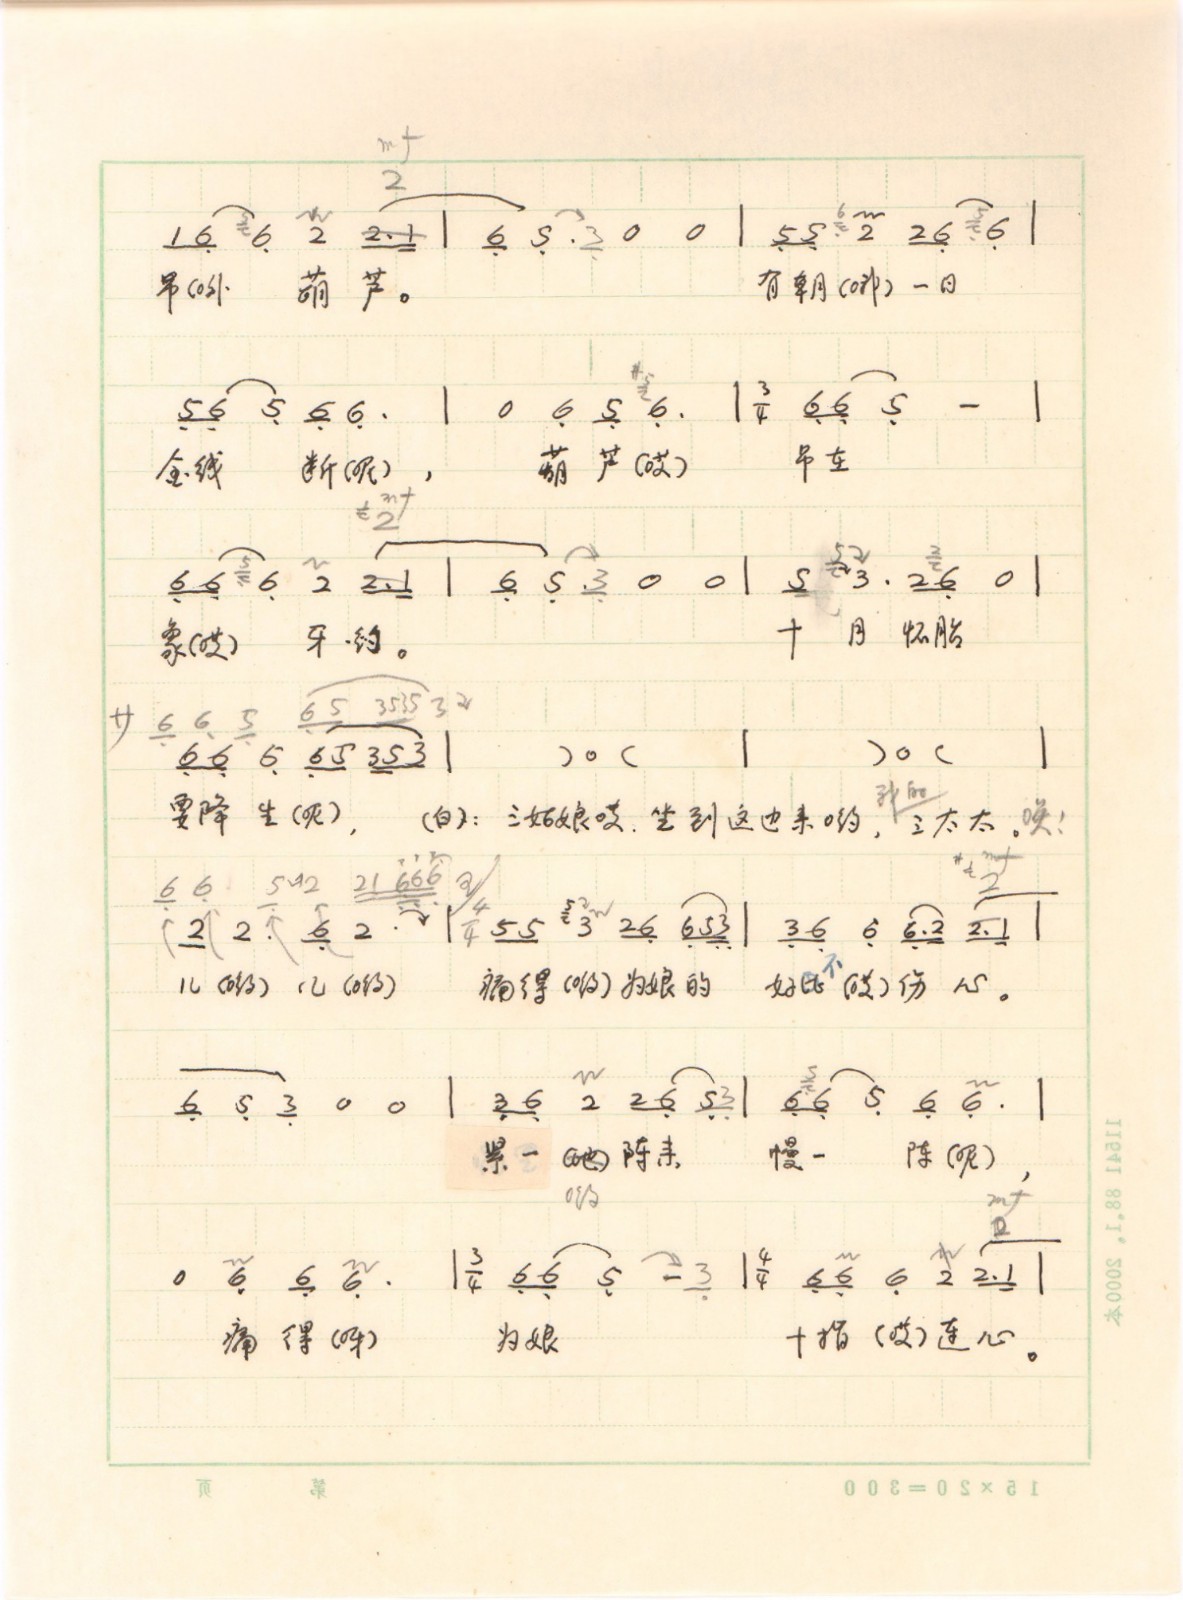 mf
2
1 6 6 2 2·1 | 6 5·3 0 0 | 5 5 2 2 6 6 |
吊(哟 葫芦。 有朝(哪)一日
5 6 5 6 6· | 0 6 5 6· | 3/4 6 6 5 - |
金线 断(呢), 葫芦(哎) 吊在
mf
2
6 6 6 2 2·1 | 6 5·3 0 0 | 5 3·2 6 0 |
象(哎) 牙·约。 十月怀胎
サ 6 6 5 6 5 3535 3 2
6 6 6 6 5 3 5 3 | )0( | )0( |
要降生(呢), (白): 三姑娘哎, 坐到这边来哟, 我的 三太太。唉!
6 6 5 2 21 666 2 mf 2
2 2· 6 2· | 4/4 5 5 3 2 6 6 5 3 | 3 6 6 6·2 2·1 |
儿(哟)儿(哟) 痛得(哟)为娘的 好比 不(哎)伤心。
6 5 3 0 0 | 3 6 2 2 6 5 3 | 6 6 5 6 6· |
紧一 陈来 慢一 陈(呢),
哟 mf
0 6 6 6· | 3/4 6 6 5 - 3 | 4/4 6 6 6 2 2·1 |
痛得(呀) 为娘 十指(哎)连心。
15×20=300
第 页
11641 88.1. 2000本